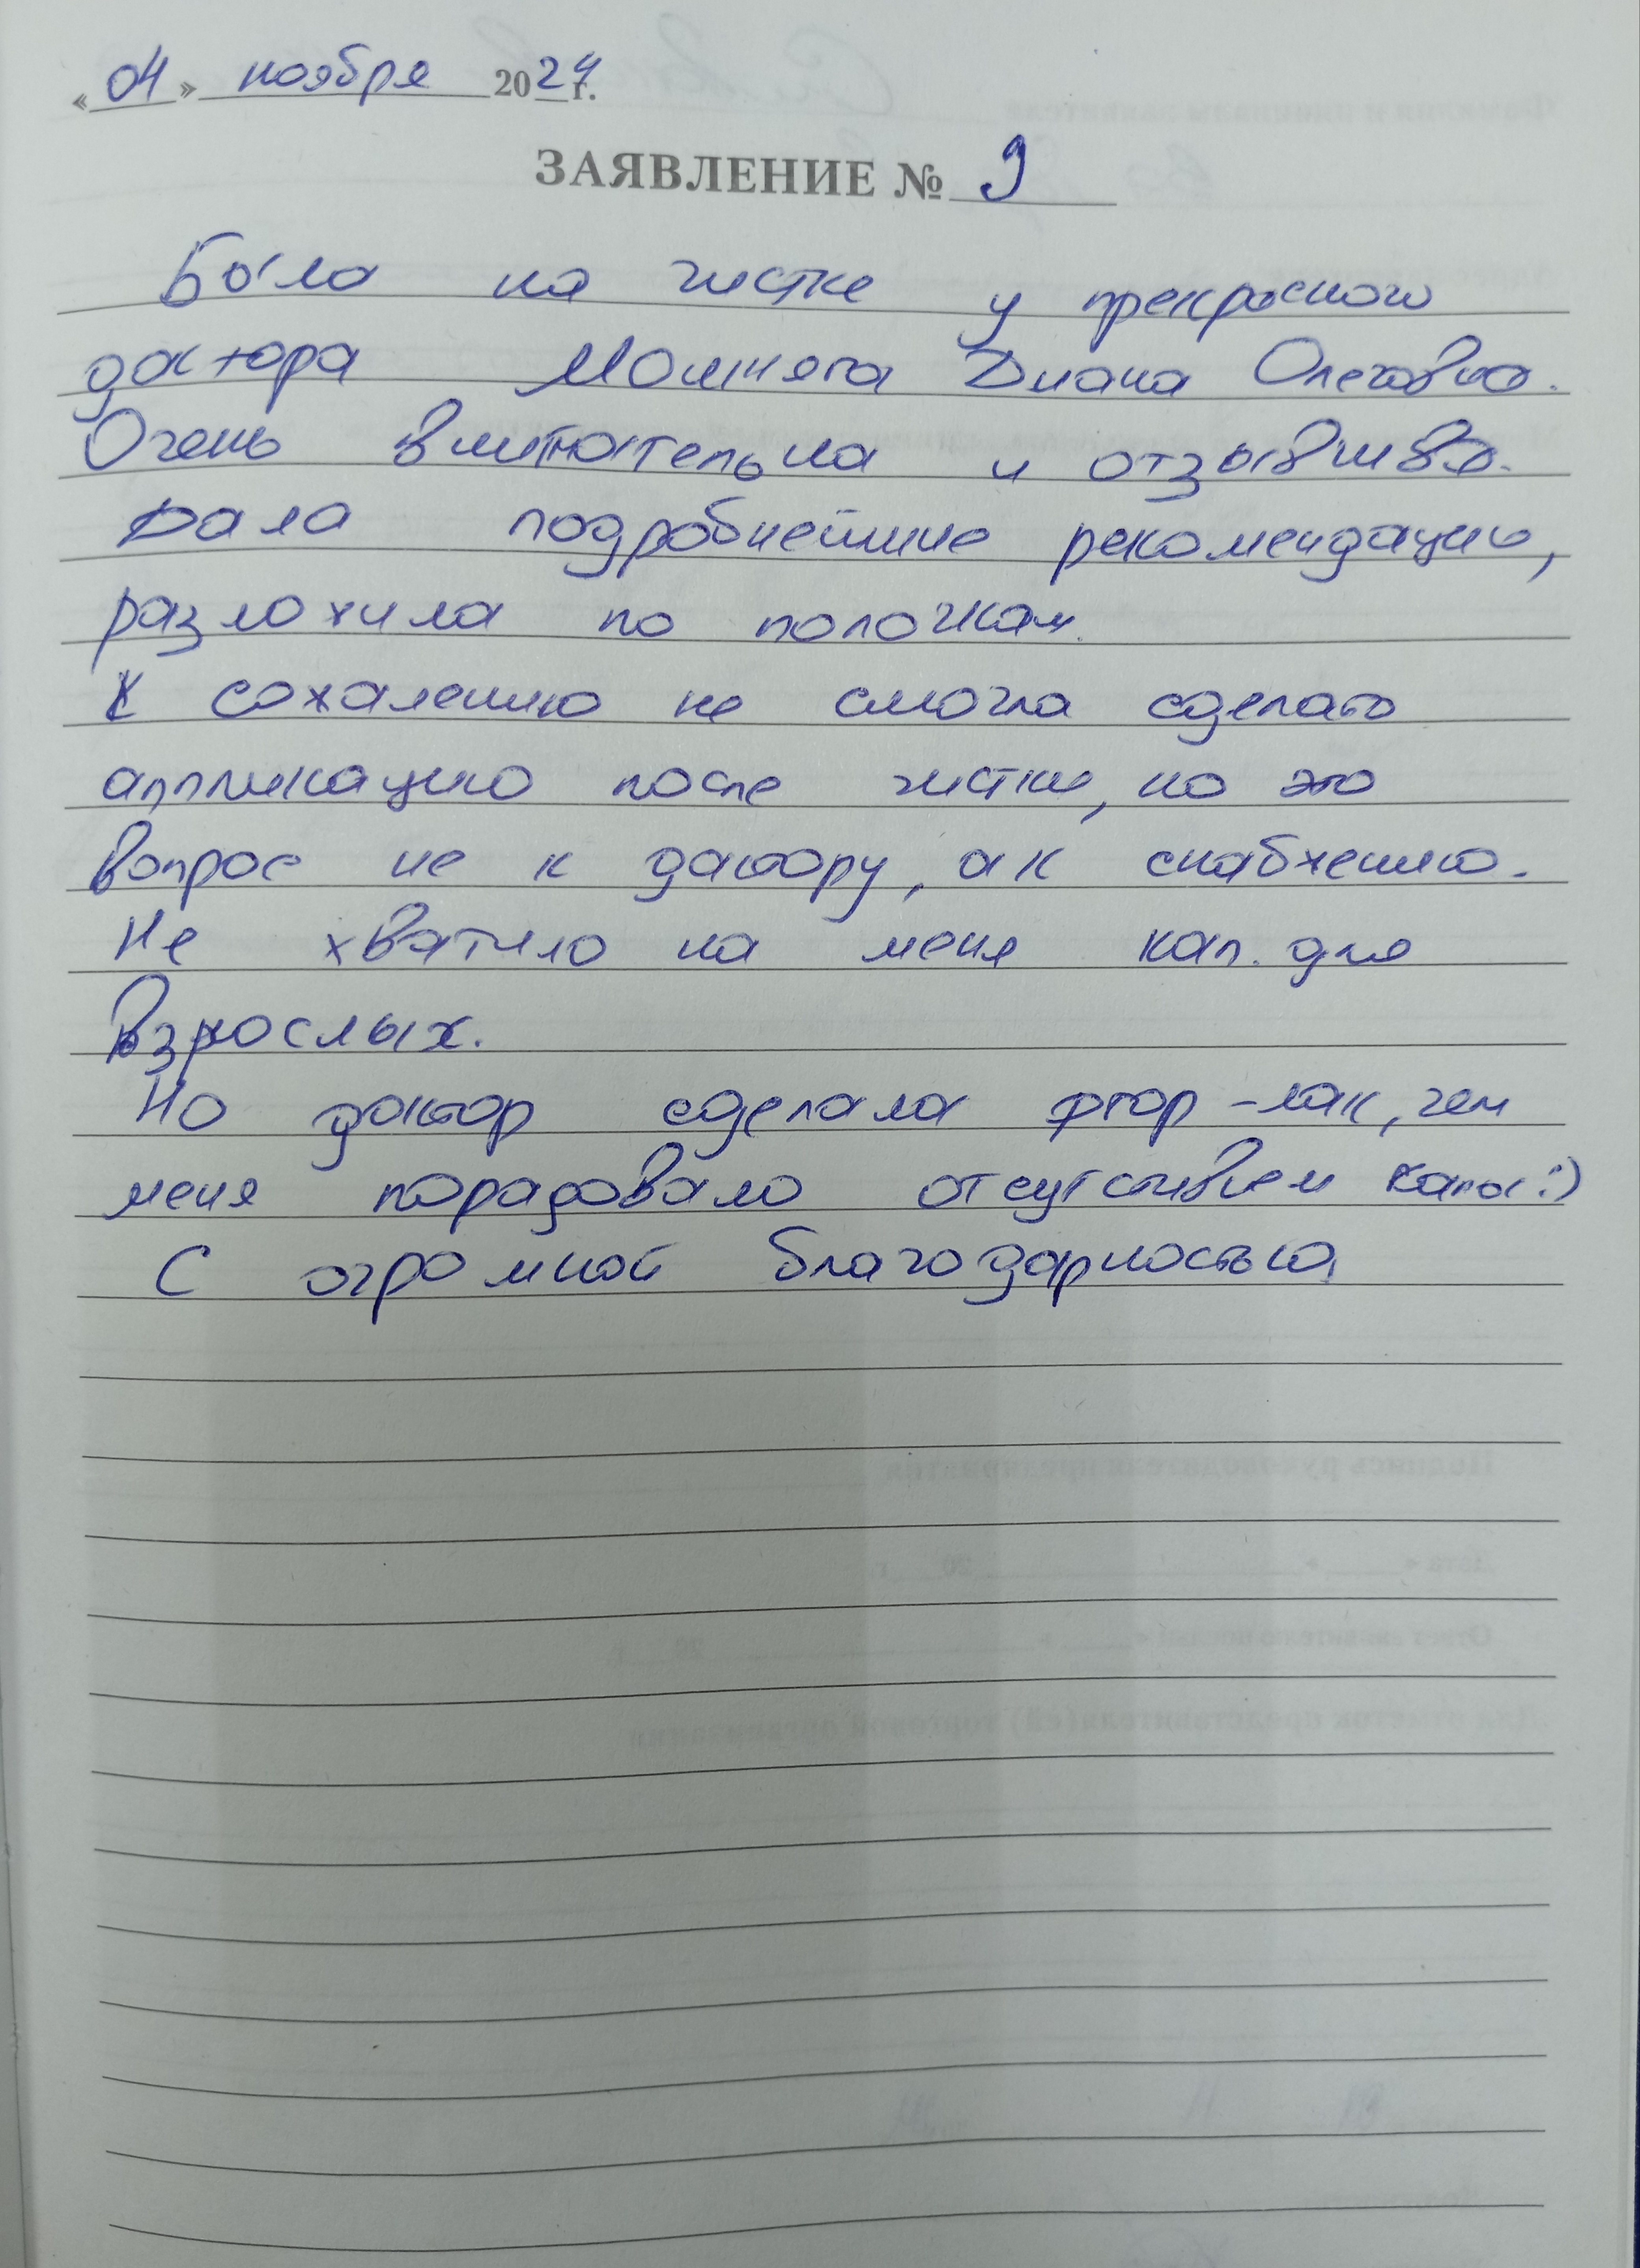 «04» ноября 2024 г.
ЗАЯВЛЕНИЕ № 9
Была на чистке у прекрасного
доктора Момняга Диана Олеговна.
Очень внимательна и отзывшва.
Дала подробнейшие рекомендации,
разложила по полочкам.
К сожалению не смогла сделать
аппликацию после чистки, но это
вопрос не к доктору, а к снабжению.
Не хватило на меня кап для
взрослых.
Но доктор сделала фтор-лак, чем
меня порадовало отсутствием капы :)
С огромной благодарностью,